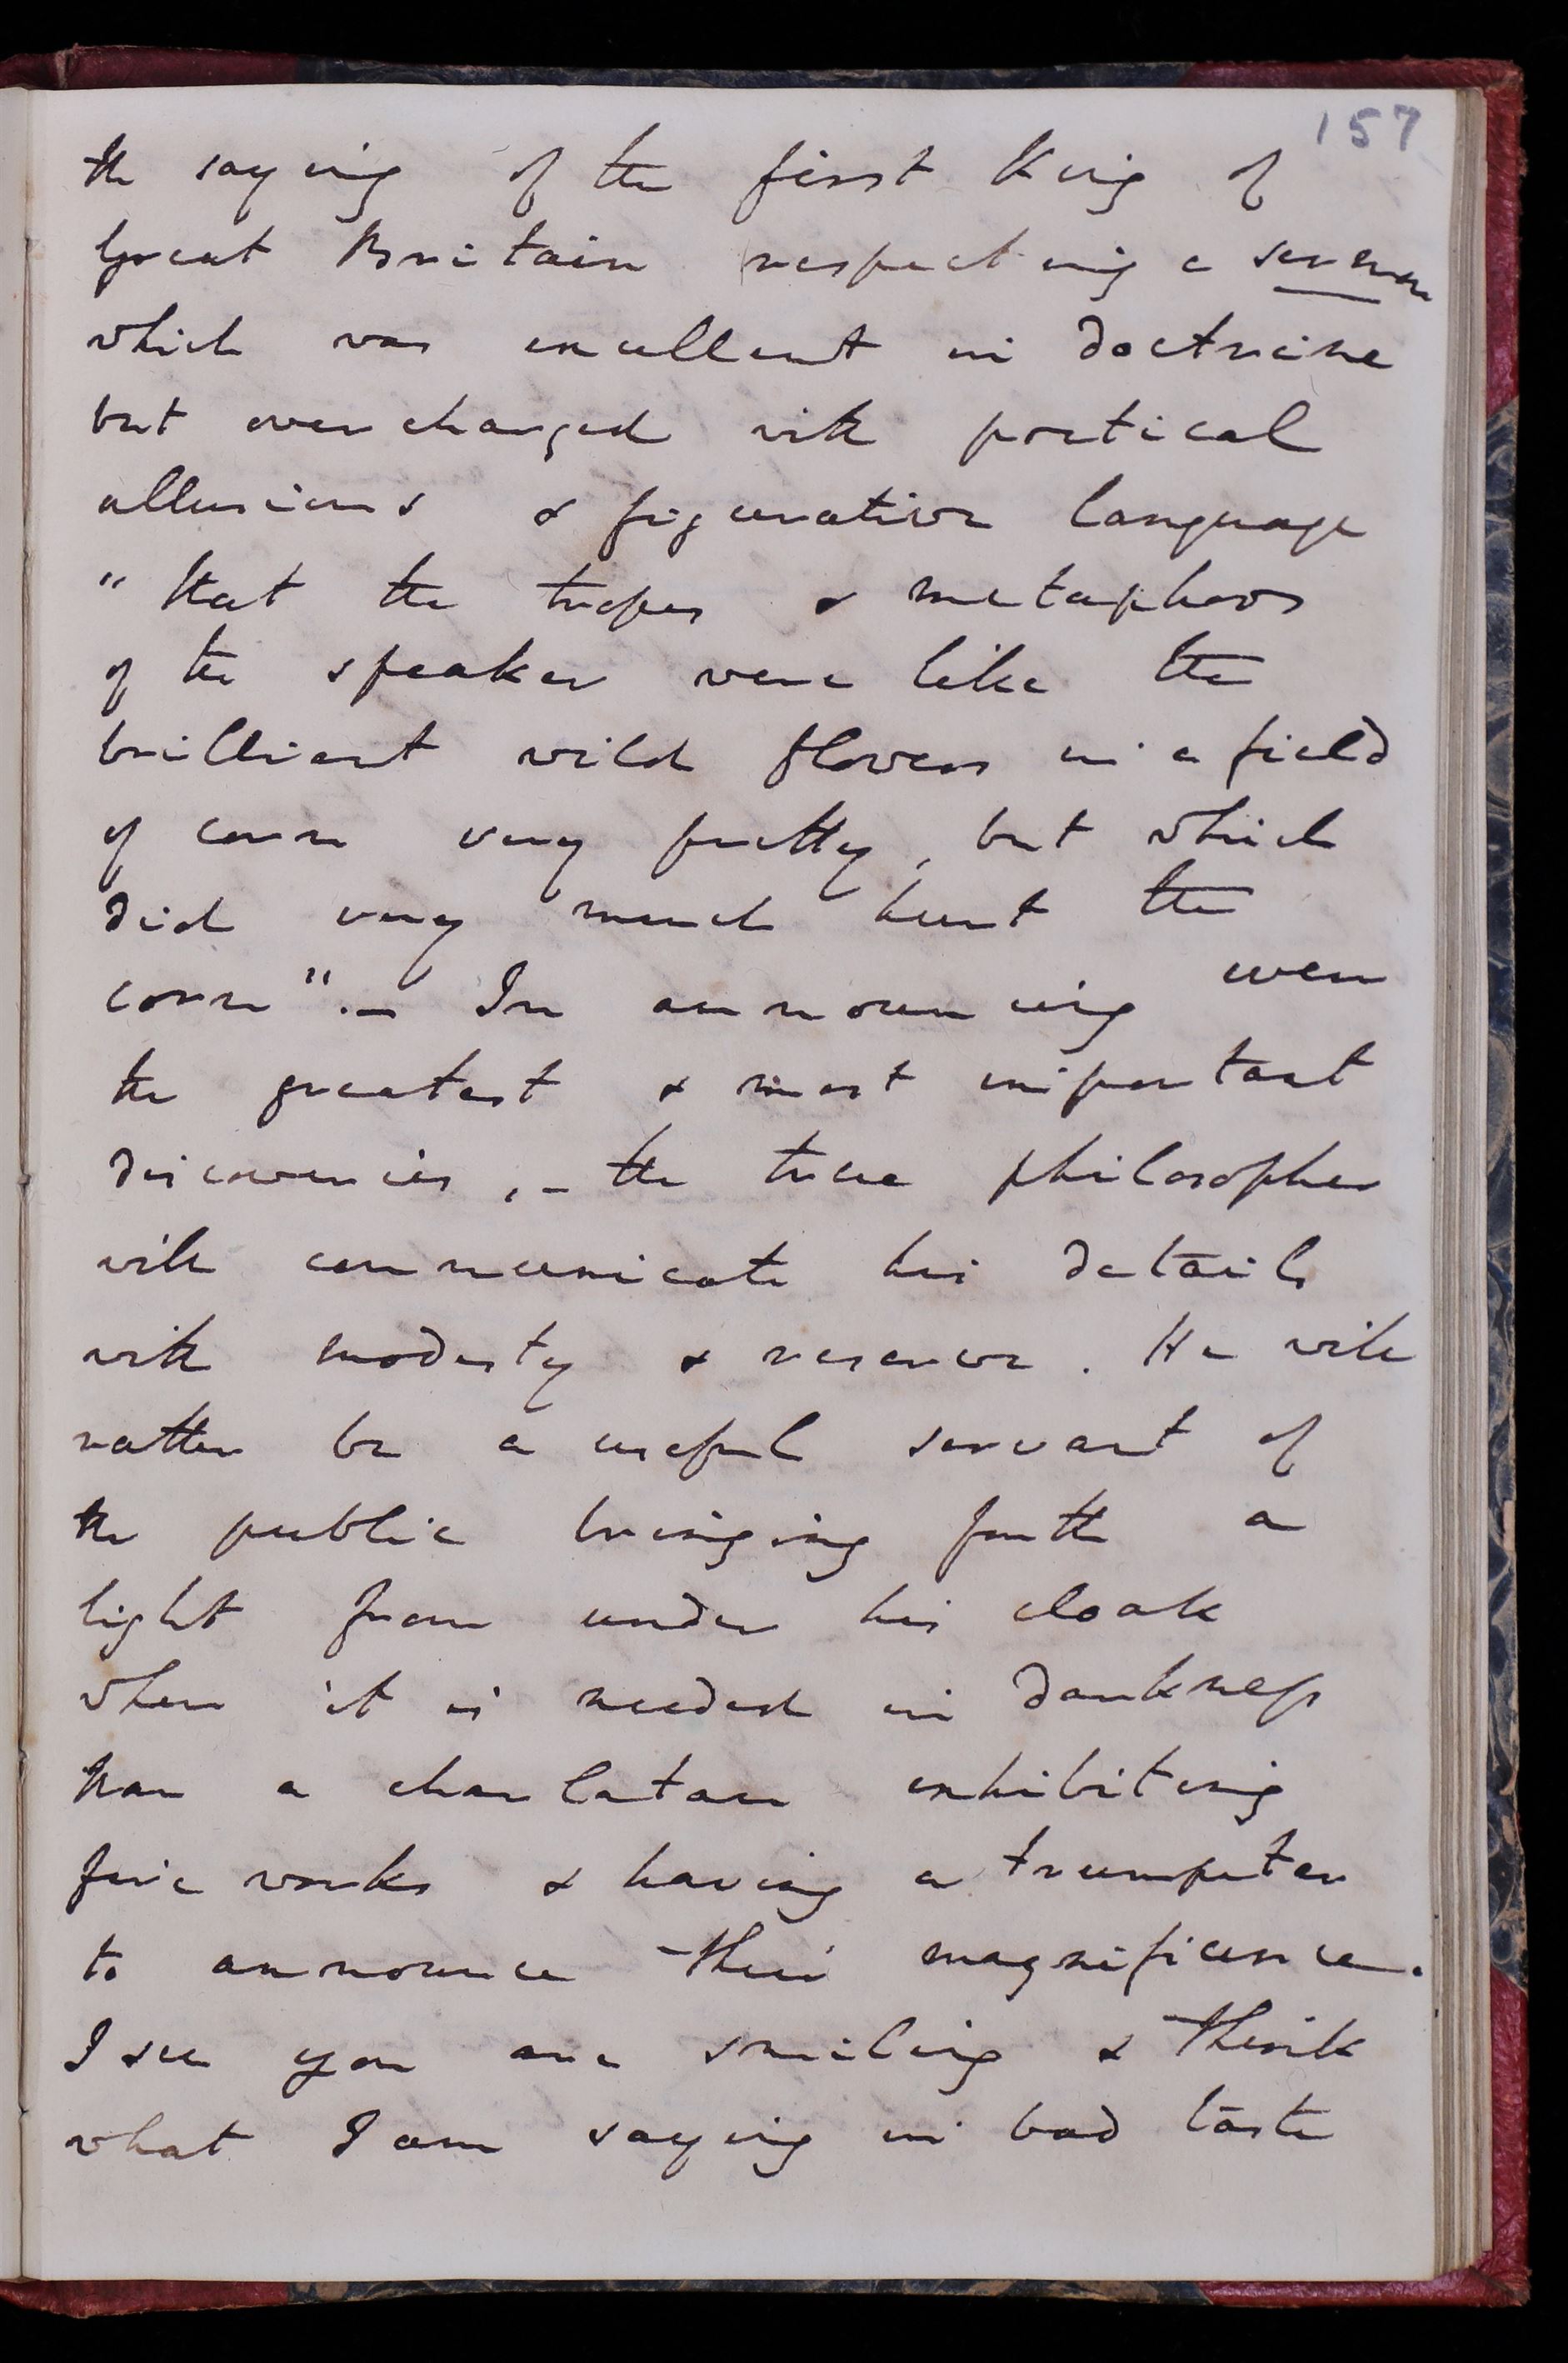 157
the saying of the first King of
Great Britain respecting a sermon
which was excellent in doctrine
but overcharged with poetical
allusions & figurative language
"that the tropes & metaphors
of the speaker were like the
brilliant wild flowers in a field
of corn very pretty, but which
did very much hurt the
corn".– In announcing even
the greatest & most important
discoveries, – the true philosopher
will communicate his details
with modesty & reserve. He will
rather be a useful servant of
the public bringing forth a
light from under his cloak
when it is needed in darkness
than a charlatan exhibiting
fire works & having a trumpeter
to announce their magnificence.
I see you are smiling & think
what I am saying in bad taste